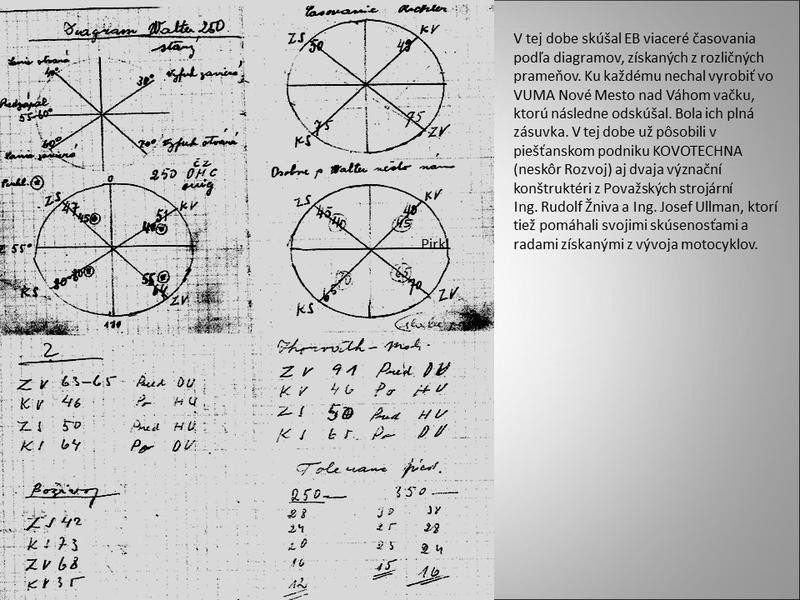 Diagram Walter 250
starý
40°
30°
výfuk zavírá
Předzápal
55-60°
60°
70° výfuk otvírá
ČZ
250 OHC
orig
0
ZS
47
45
51
KV
ZV
Z 55°
KS
55
64
180
Časovanie
ZS
50
49
KV
75
75
KS
ZV
Osobne p Walter
ZS
45
40
40
45
KV
Pirkl
70
65
65
70
KS
ZV
2
ZV 63-65 Pred DÚ
KV 46 Po HÚ
ZS 50 Pred HÚ
KS 64 Po DÚ
Horváth
ZV 91 Pred DÚ
KV 46 Po HÚ
ZS 50 Pred HÚ
KS 65 Po DÚ
Božívoj
ZS 42
KS 73
ZV 68
KV 35
Tolerance
250 350
28 30 38
24 25 28
20 25 24
16 15 16
12
V tej dobe skúšal EB viaceré časovania
podľa diagramov, získaných z rozličných
prameňov. Ku každému nechal vyrobiť vo
VUMA Nové Mesto nad Váhom vačku,
ktorú následne odskúšal. Bola ich plná
zásuvka. V tej dobe už pôsobili v
piešťanskom podniku KOVOTECHNA
(neskôr Rozvoj) aj dvaja význační
konštruktéri z Považských strojární
Ing. Rudolf Žniva a Ing. Josef Ullman, ktorí
tiež pomáhali svojimi skúsenosťami a
radami získanými z vývoja motocyklov.